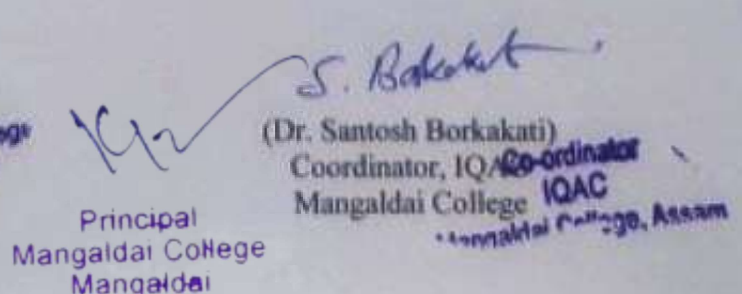 S. Borkakati
(Dr. Santosh Borkakati)
Coordinator, IQAC
Mangaldai College
Co-ordinator
IQAC
Mangaldai College, Assam
Principal
Mangaldai College
Mangaldai